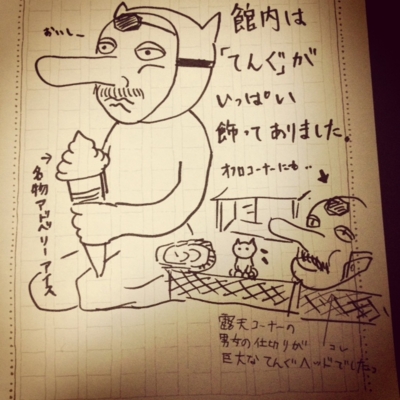 おいしー
館内は
「てんぐ」が
いっぱい
飾ってありました。
オフロコーナーにも..
→名物アドベリーアイス
露天コーナーの
男女の仕切りが コレ
巨大なてんぐヘッドでしたっ